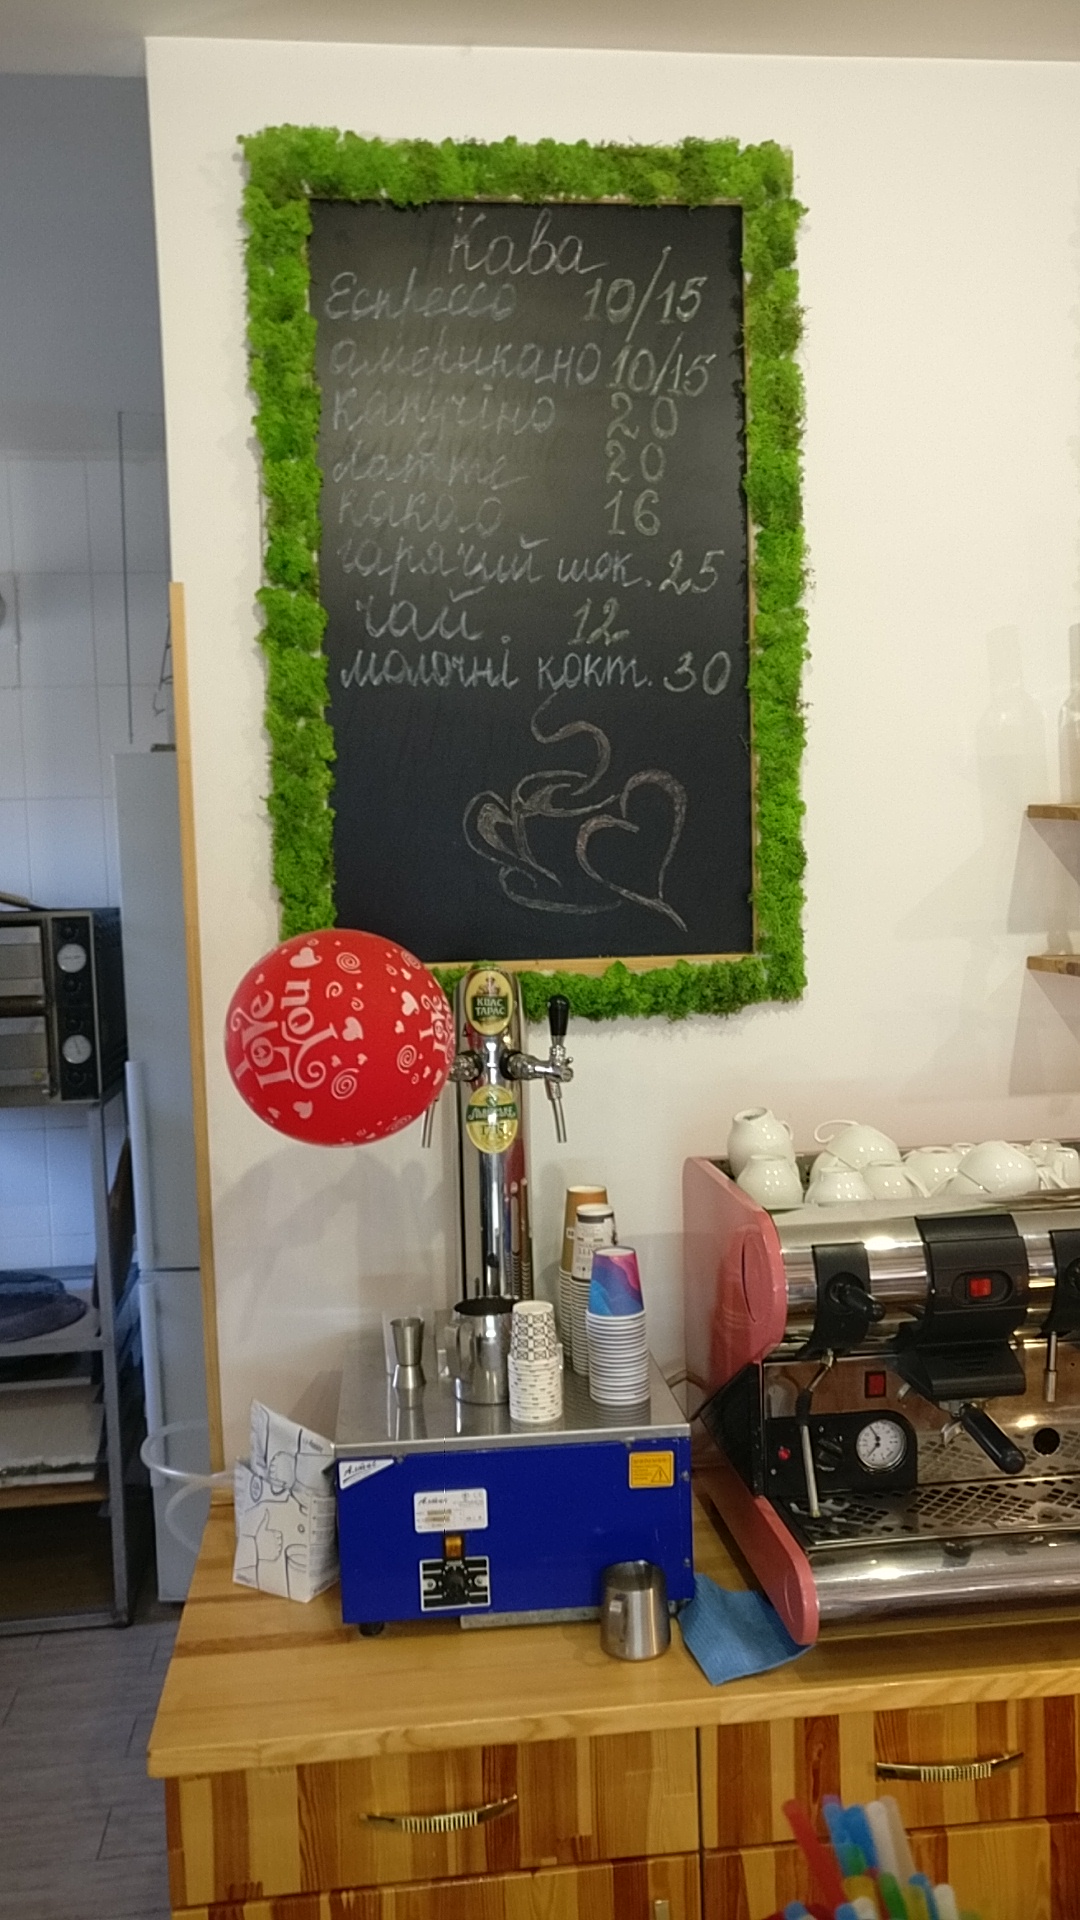 Кава
Еспрессо 10/15
американо 10/15
капучіно 20
латте 20
какао 16
гарячий шок. 25
чай. 12
молочні кокт. 30
Love
You
КВАС
ТАРАС
1715